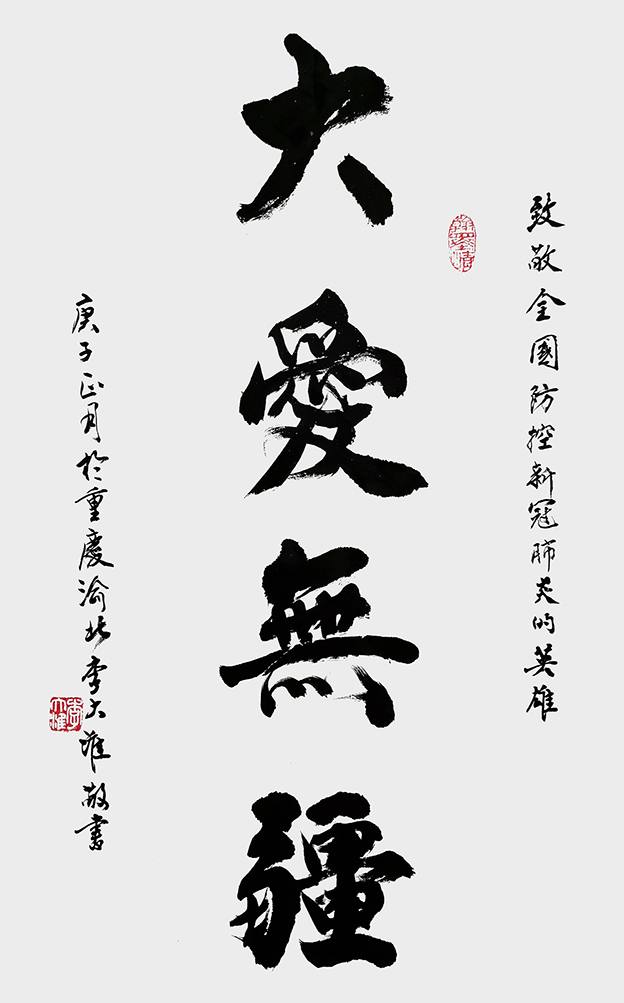 致敬全國防控新冠肺炎的英雄
大愛無疆
庚子正月於重慶渝北李大敬書